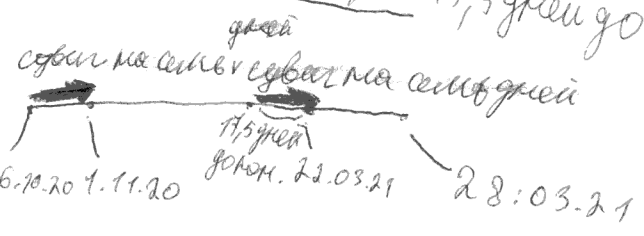 дней до
дней
сдвиг на семь сдвиг на семь дней
17,5 дней
6.10.20 1.11.20 22.03.21 28:03.21